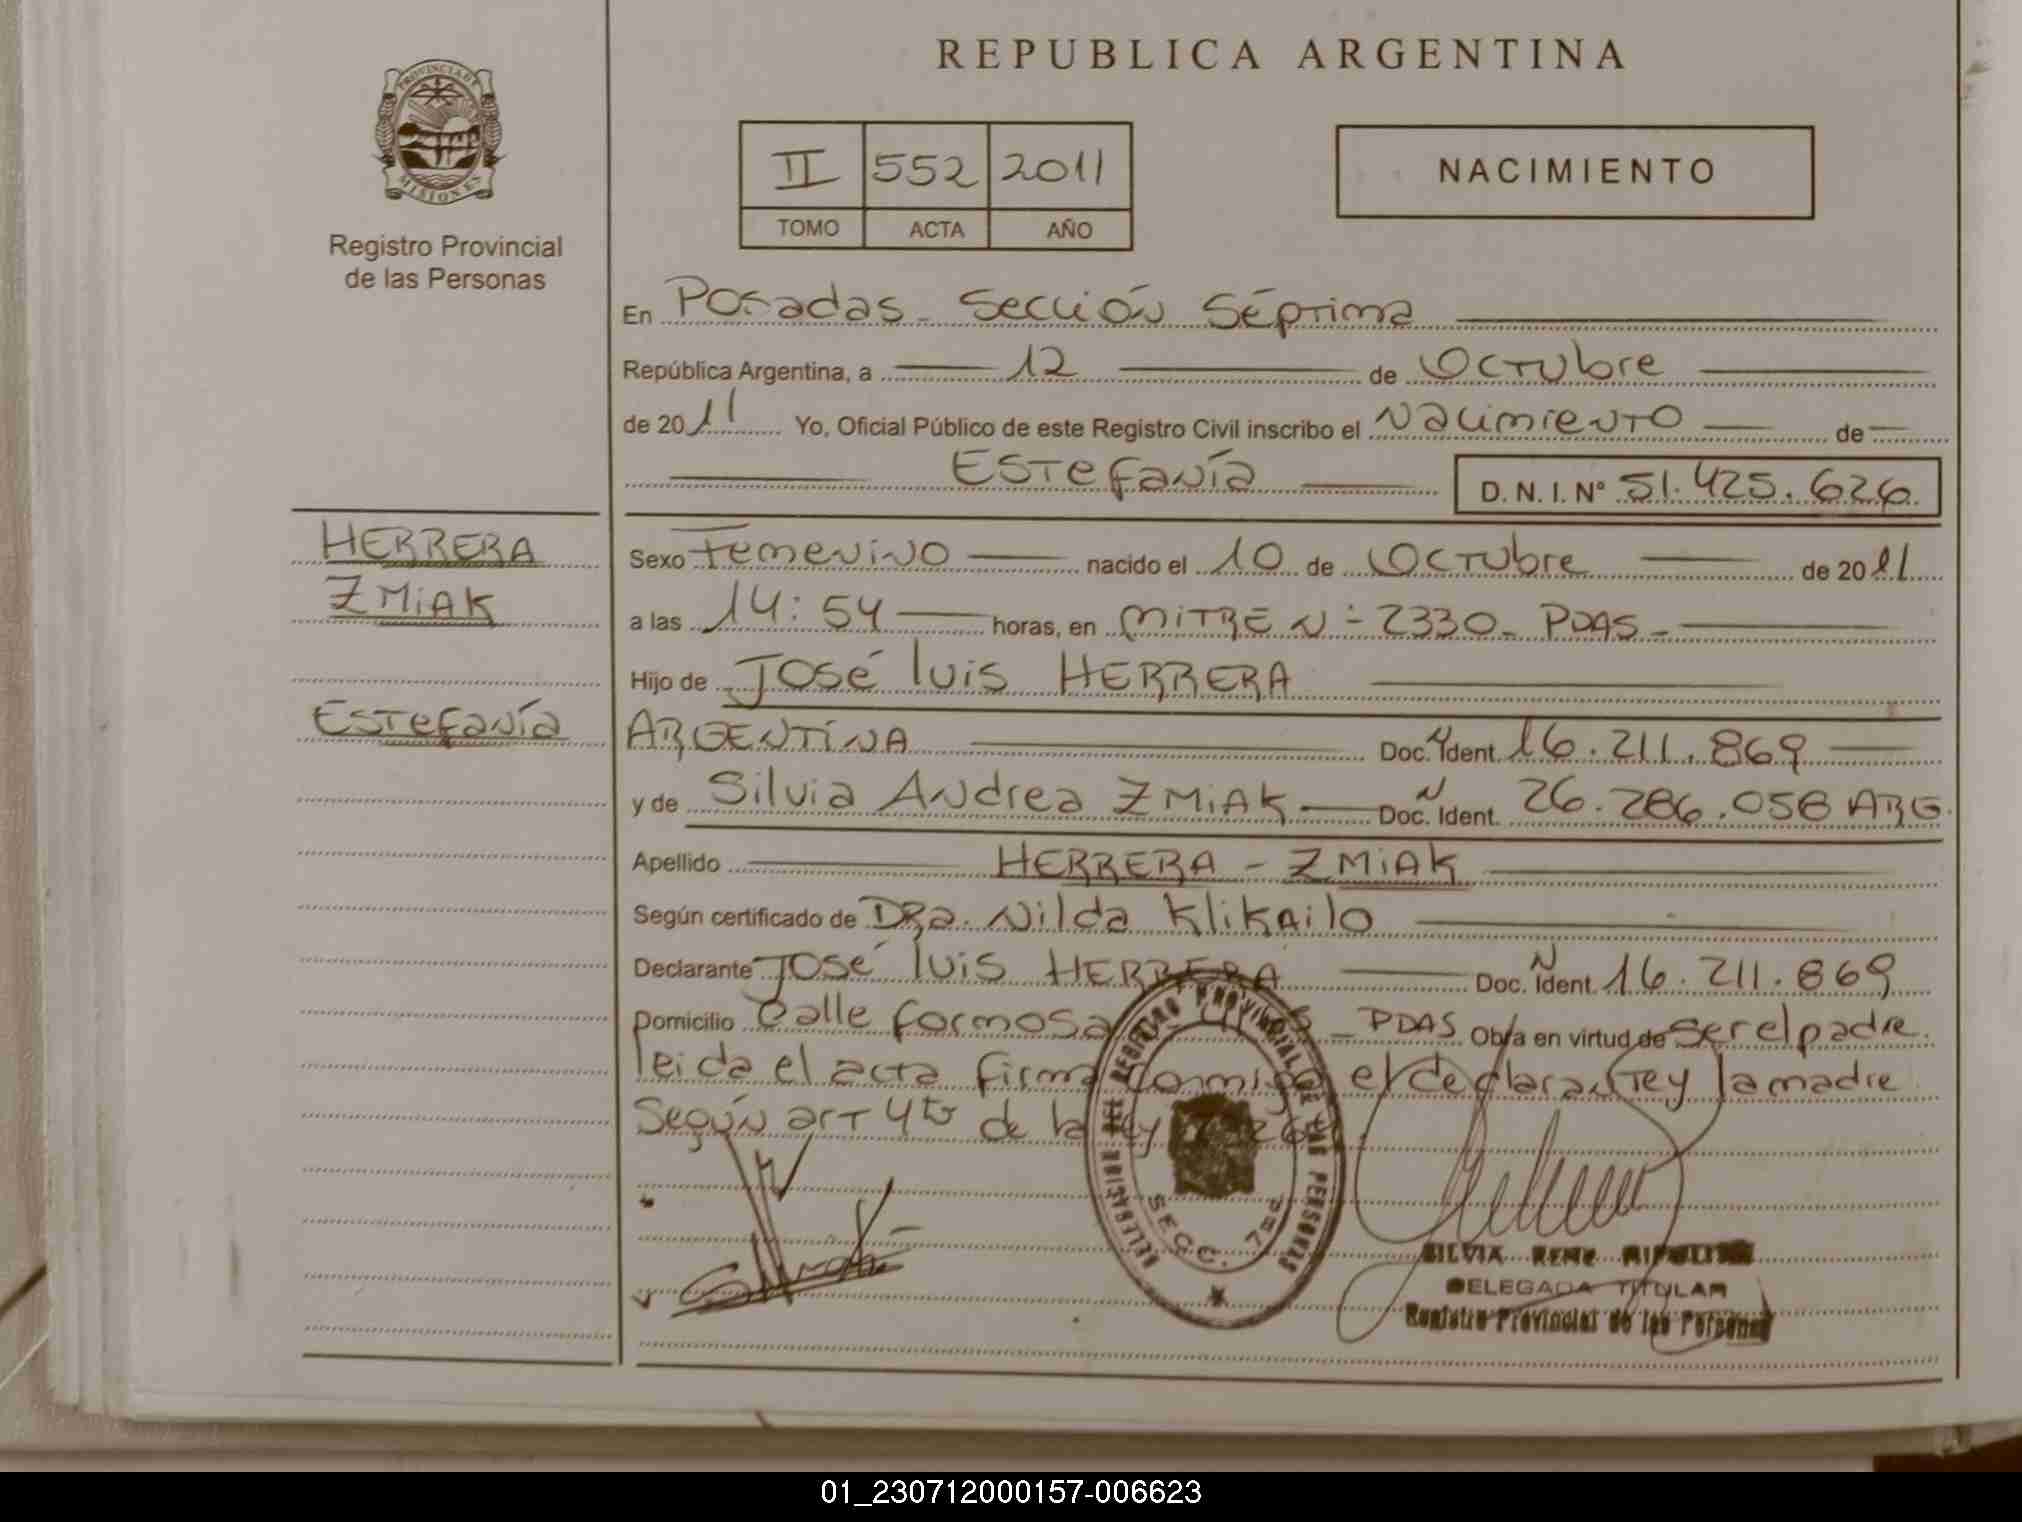 REPUBLICA ARGENTINA
PROVINCIA DE
MISIONES
Registro Provincial
de las Personas
II 552 2011
TOMO ACTA AÑO
NACIMIENTO
En Posadas - Sección Séptima
República Argentina, a 12 de Octubre
de 2011 Yo, Oficial Público de este Registro Civil inscribo el Nacimiento de
Estefanía D. N. I. Nº 51.425.626
HERRERA
ZMiAK
Estefanía
Sexo Femenino nacido el 10 de Octubre de 2011
a las 14:54 horas, en MITRE Nº 2330 - PDAS -
Hijo de José luis HERRERA
ARGENTINA Doc. N Ident. 16.211.869
y de Silvia Andrea ZMiAK Doc. N Ident. 26.286.058 ARG.
Apellido HERRERA - ZMiAK
Según certificado de DRa. Nilda KliKailo
Declarante José luis HERRERA Doc. N Ident. 16.211.869
Domicilio Calle formosa - PDAS Obra en virtud de ser el padre.
leida el acta firma conmigo el declarante y la madre
Según art 4to de la ley
DELEGACION DEL REGISTRO PROVINCIAL DE LAS PERSONAS
SECC. 7ma.
SILVIA RENE
DELEGADA TITULAR
Registro Provincial de las Personas
01_230712000157-006623